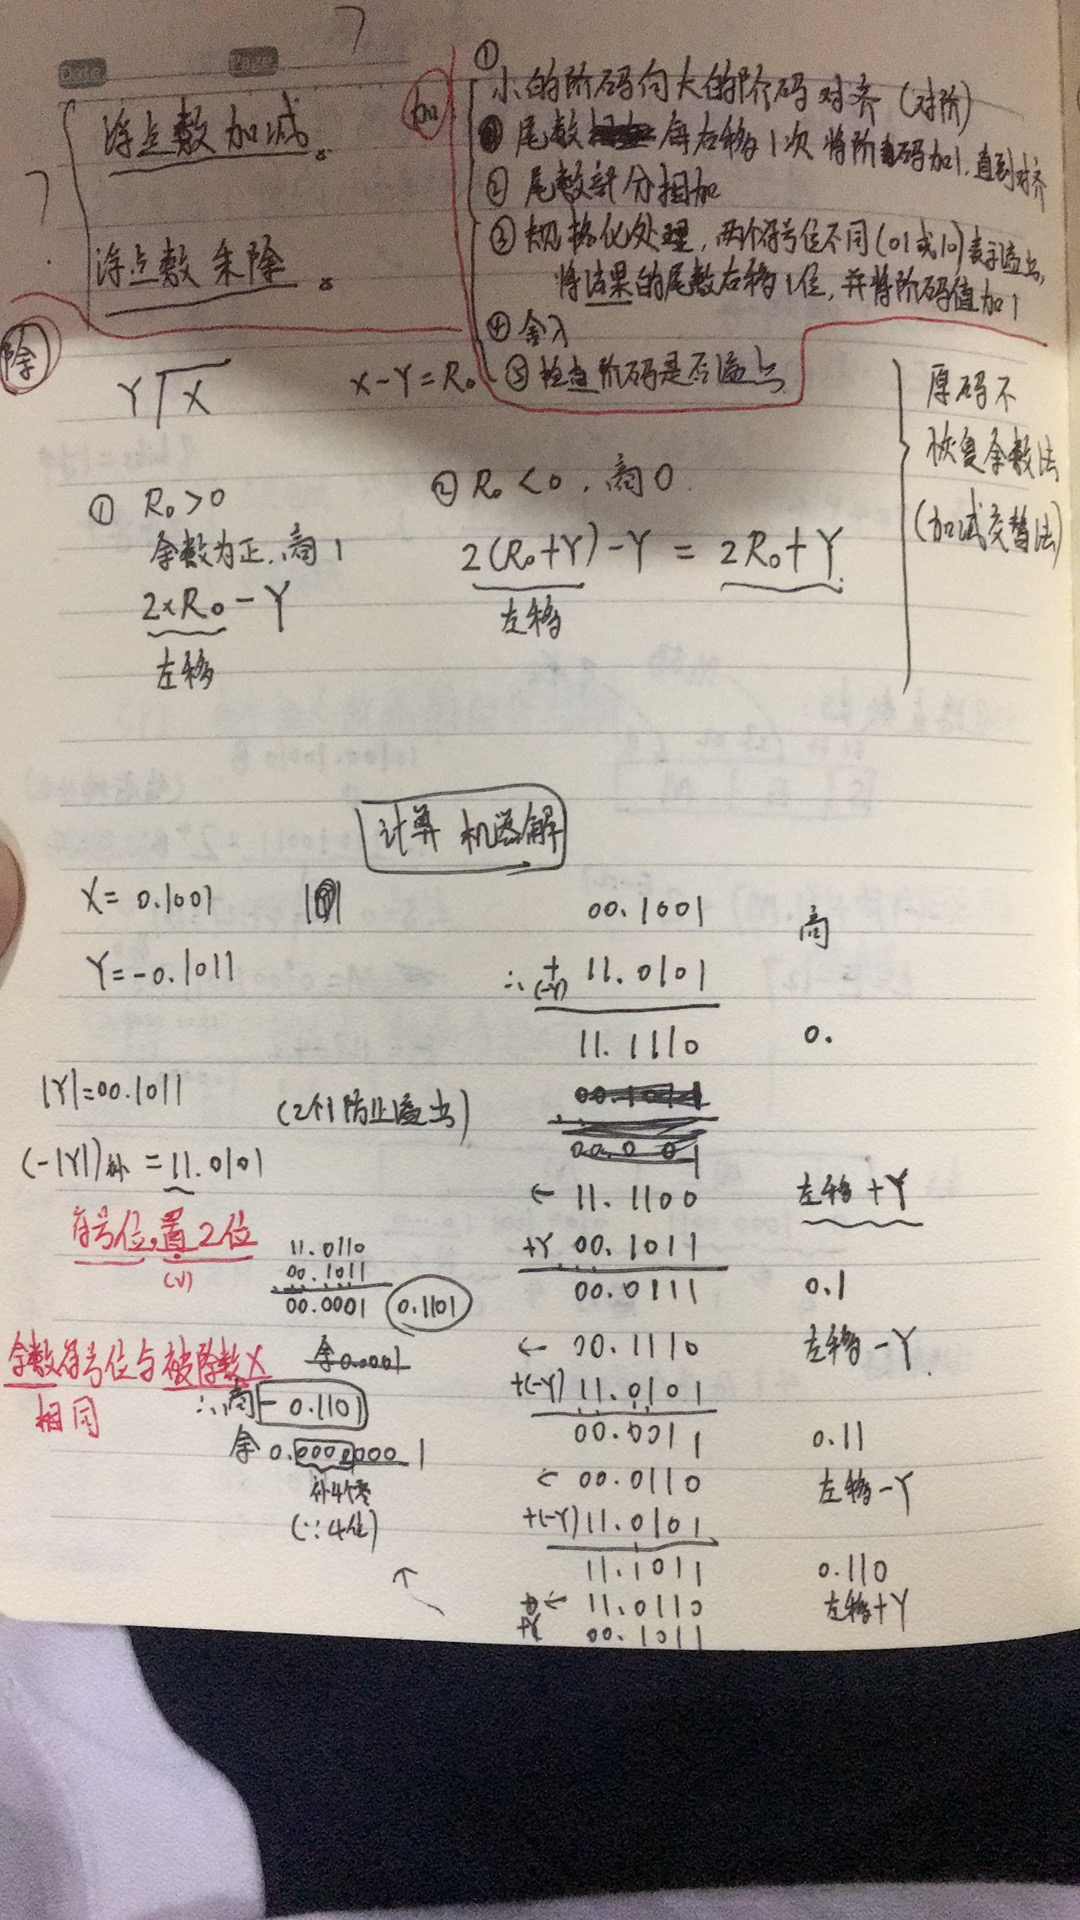 Date
Page
浮点数加减。
浮点数乘除。
加
①
小的阶码向大的阶码对齐(对阶)
尾数 每右移1次 将阶码加1,直到对齐
② 尾数部分相加
③ 规格化处理,两个符号位不同(01或10)表示溢出,
将结果的尾数右移1位,并将阶码值加1
④ 舍入
⑤ 检查阶码是否溢出
除
Y X
X-Y=R₀
① R₀>0
余数为正,商1
2×R₀-Y
左移
② R₀<0,商0
2(R₀+Y)-Y = 2R₀+Y
左移
原码不
恢复余数法
(加减交替法)
计算 机器解
X=0.1001
Y=-0.1011
|Y|=00.1011
(2个1防止溢出)
(-|Y|)补=11.0101
符号位,置2位
(√)
11.0110
00.1011
00.0001
0.1101
余数符号位与被除数X
相同
余0.0001
∴商 -0.1101
余 0.00000001
补4个零
(∵4位)
00.1001
商
∴ + (-Y) 11.0101
11.1110 0.
← 11.1100 左移+Y
+Y 00.1011
00.0111 0.1
← 00.1110 左移-Y
+(-Y) 11.0101
00.0011 0.11
← 00.0110 左移-Y
+(-Y) 11.0101
11.1011 0.110
← 11.0110 左移+Y
+Y 00.1011